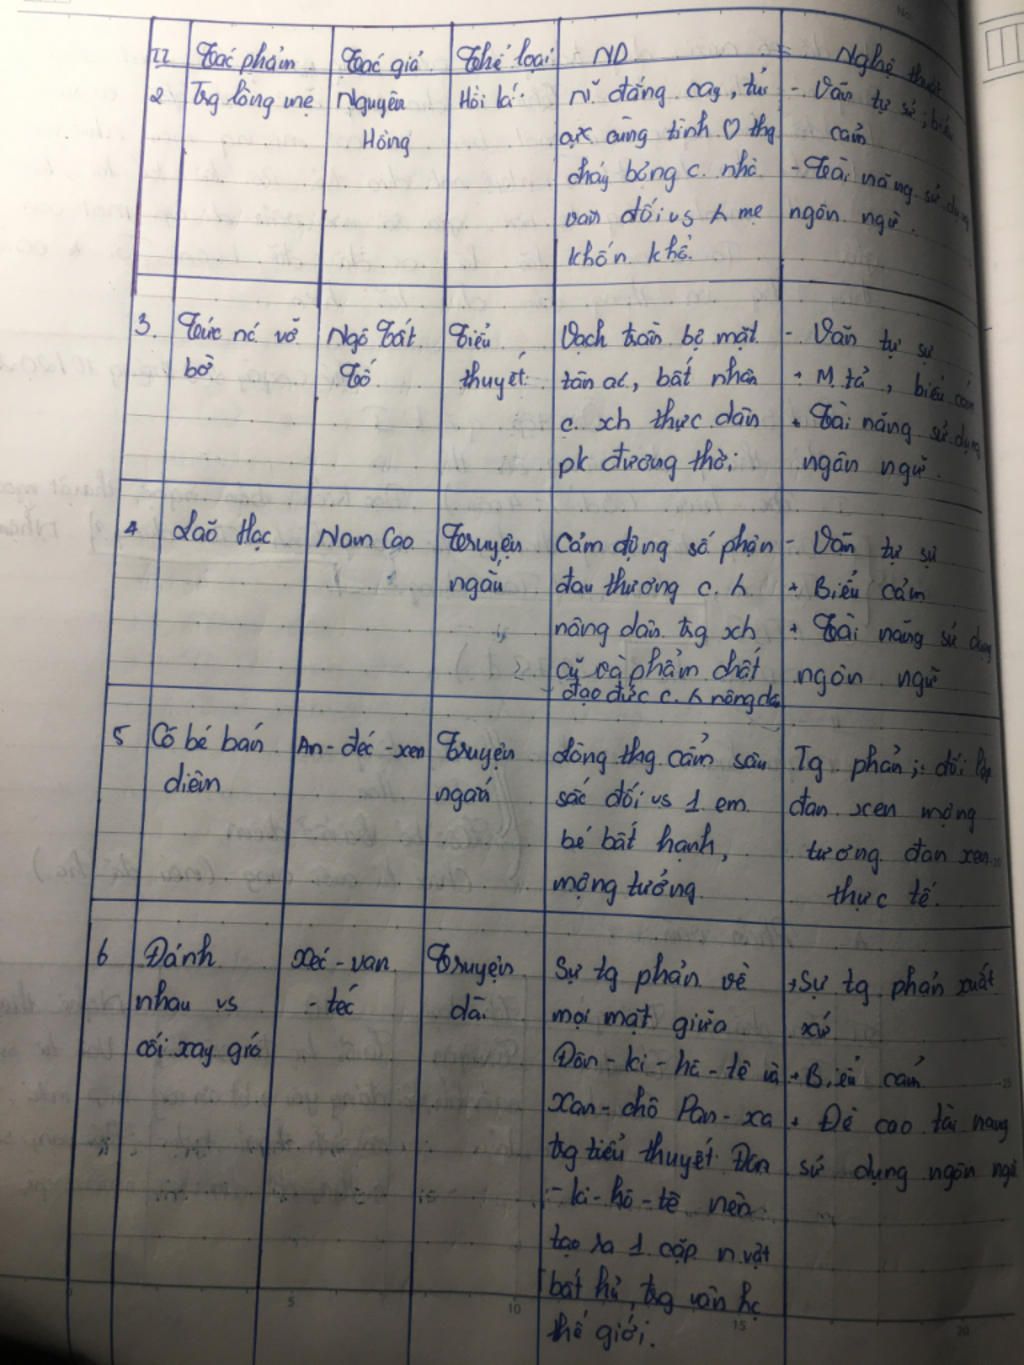 TT Tác phẩm Tác giả Thể loại ND Nghệ thuật
2 Trg lòng mẹ
Nguyên
Hồng
Hồi kí
N~ đắng cay, tủi
cực cùng tình ♡ thg
cháy bỏng c. nhà
văn đối vs mẹ
khốn khổ.
- Văn tự sự, biểu
cảm
- Tài năng sử dụng
ngôn ngữ.
3. Tức nc vỡ
bờ
Ngô Tất
Tố
Tiểu
thuyết
Vạch trần bộ mặt
tàn ác, bất nhân
c. xh thực dân
pk đương thời
- Văn tự sự
+ M. tả, biểu cảm
+ Tài năng sử dụng
ngôn ngữ.
4 Lão Hạc
Nam Cao
Truyện
ngắn
Cảm động số phận
đau thương c.
nông dân trg xh
cũ và phẩm chất
đạo đức c. nông dân
- Văn tự sự
+ Biểu cảm
+ Tài năng sử dụng
ngôn ngữ
5 Cô bé bán
diêm
An-đéc-xen
Truyện
ngắn
Lòng thg cảm sâu
sắc đối vs 1 em
bé bất hạnh,
mộng tưởng
Tg phản, đối lập
đan xen mộng
tương đan xen
thực tế.
6 Đánh
nhau vs
cối xay gió
Xéc-van
-téc
Truyện
dài
Sự tg phản về
mọi mặt giữa
Đôn-ki-hô-tê và
Xan-chô Pan-xa
trg tiểu thuyết Đôn
-ki-hô-tê nên
tạo ra 1 cặp n.vật
bất hủ, trg văn hc
thế giới.
+ Sự tg phản xuất
xứ
+ Biểu cảm
+ Đề cao tài năng
sử dụng ngôn ngữ
5
10
15
20